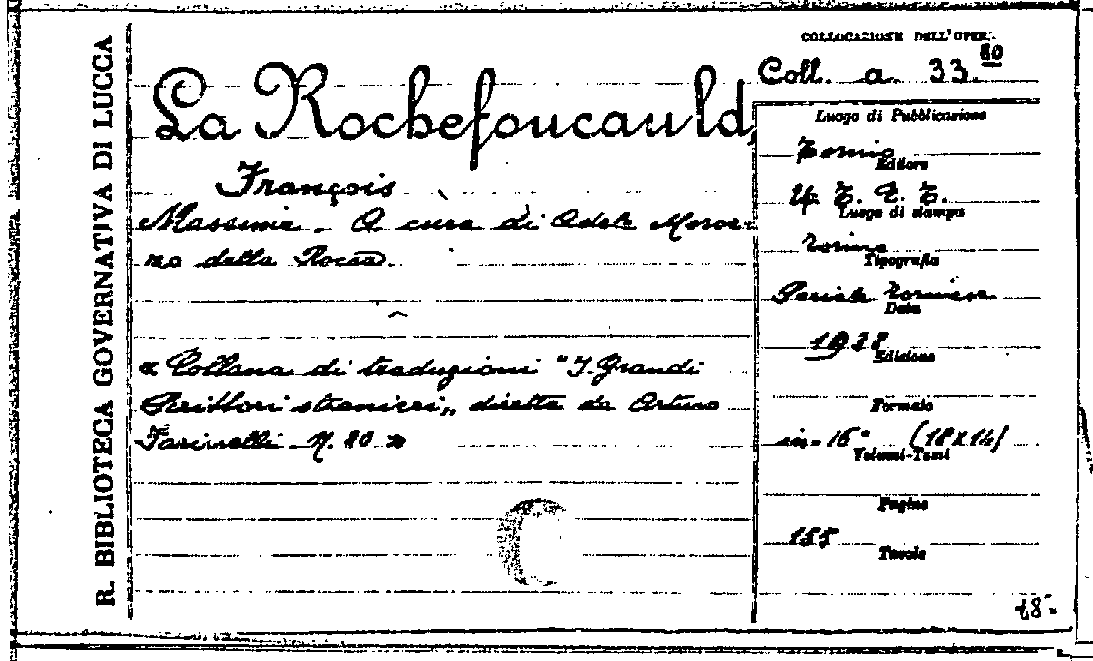 R. BIBLIOTECA GOVERNATIVA DI LUCCA
COLLOCAZIONE DELL'OPERA
Coll. a. 33.80
La Rochefoucauld,
François
Massime. A cura di Adele Moroz-
zo della Rocca.
« Collana di traduzioni "I Grandi
Scrittori stranieri„ diretta da Arturo
Farinelli N. 80 »
Luogo di Pubblicazione
Torino
Editore
U. T. E. T.
Luogo di stampa
Torino
Tipografia
Sociale Torinese
Data
1928
Edizione
Formato
in-16° (18x14)
Volumi-Tomi
Pagine
155
Tavole